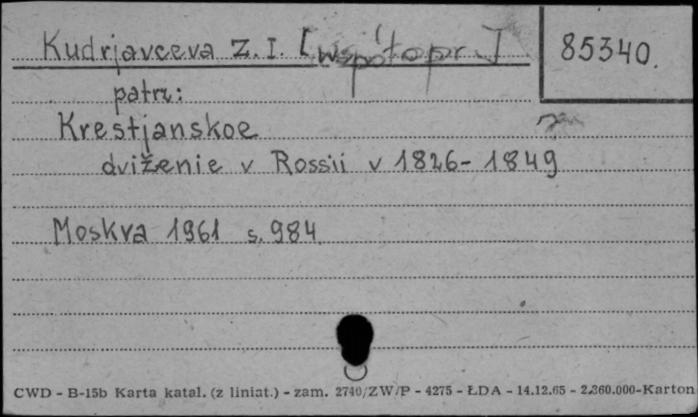 Kudrjavceva Z. I. [współopr.]
85340.
patrz:
Krestjanskoe
dviženie v Rossii v 1826-1849
Moskva 1961 s. 984
CWD - B-15b Karta katal. (z liniat.) - zam. 2740/ZW/P - 4275 - ŁDA - 14.12.65 - 2.360.000-Karton